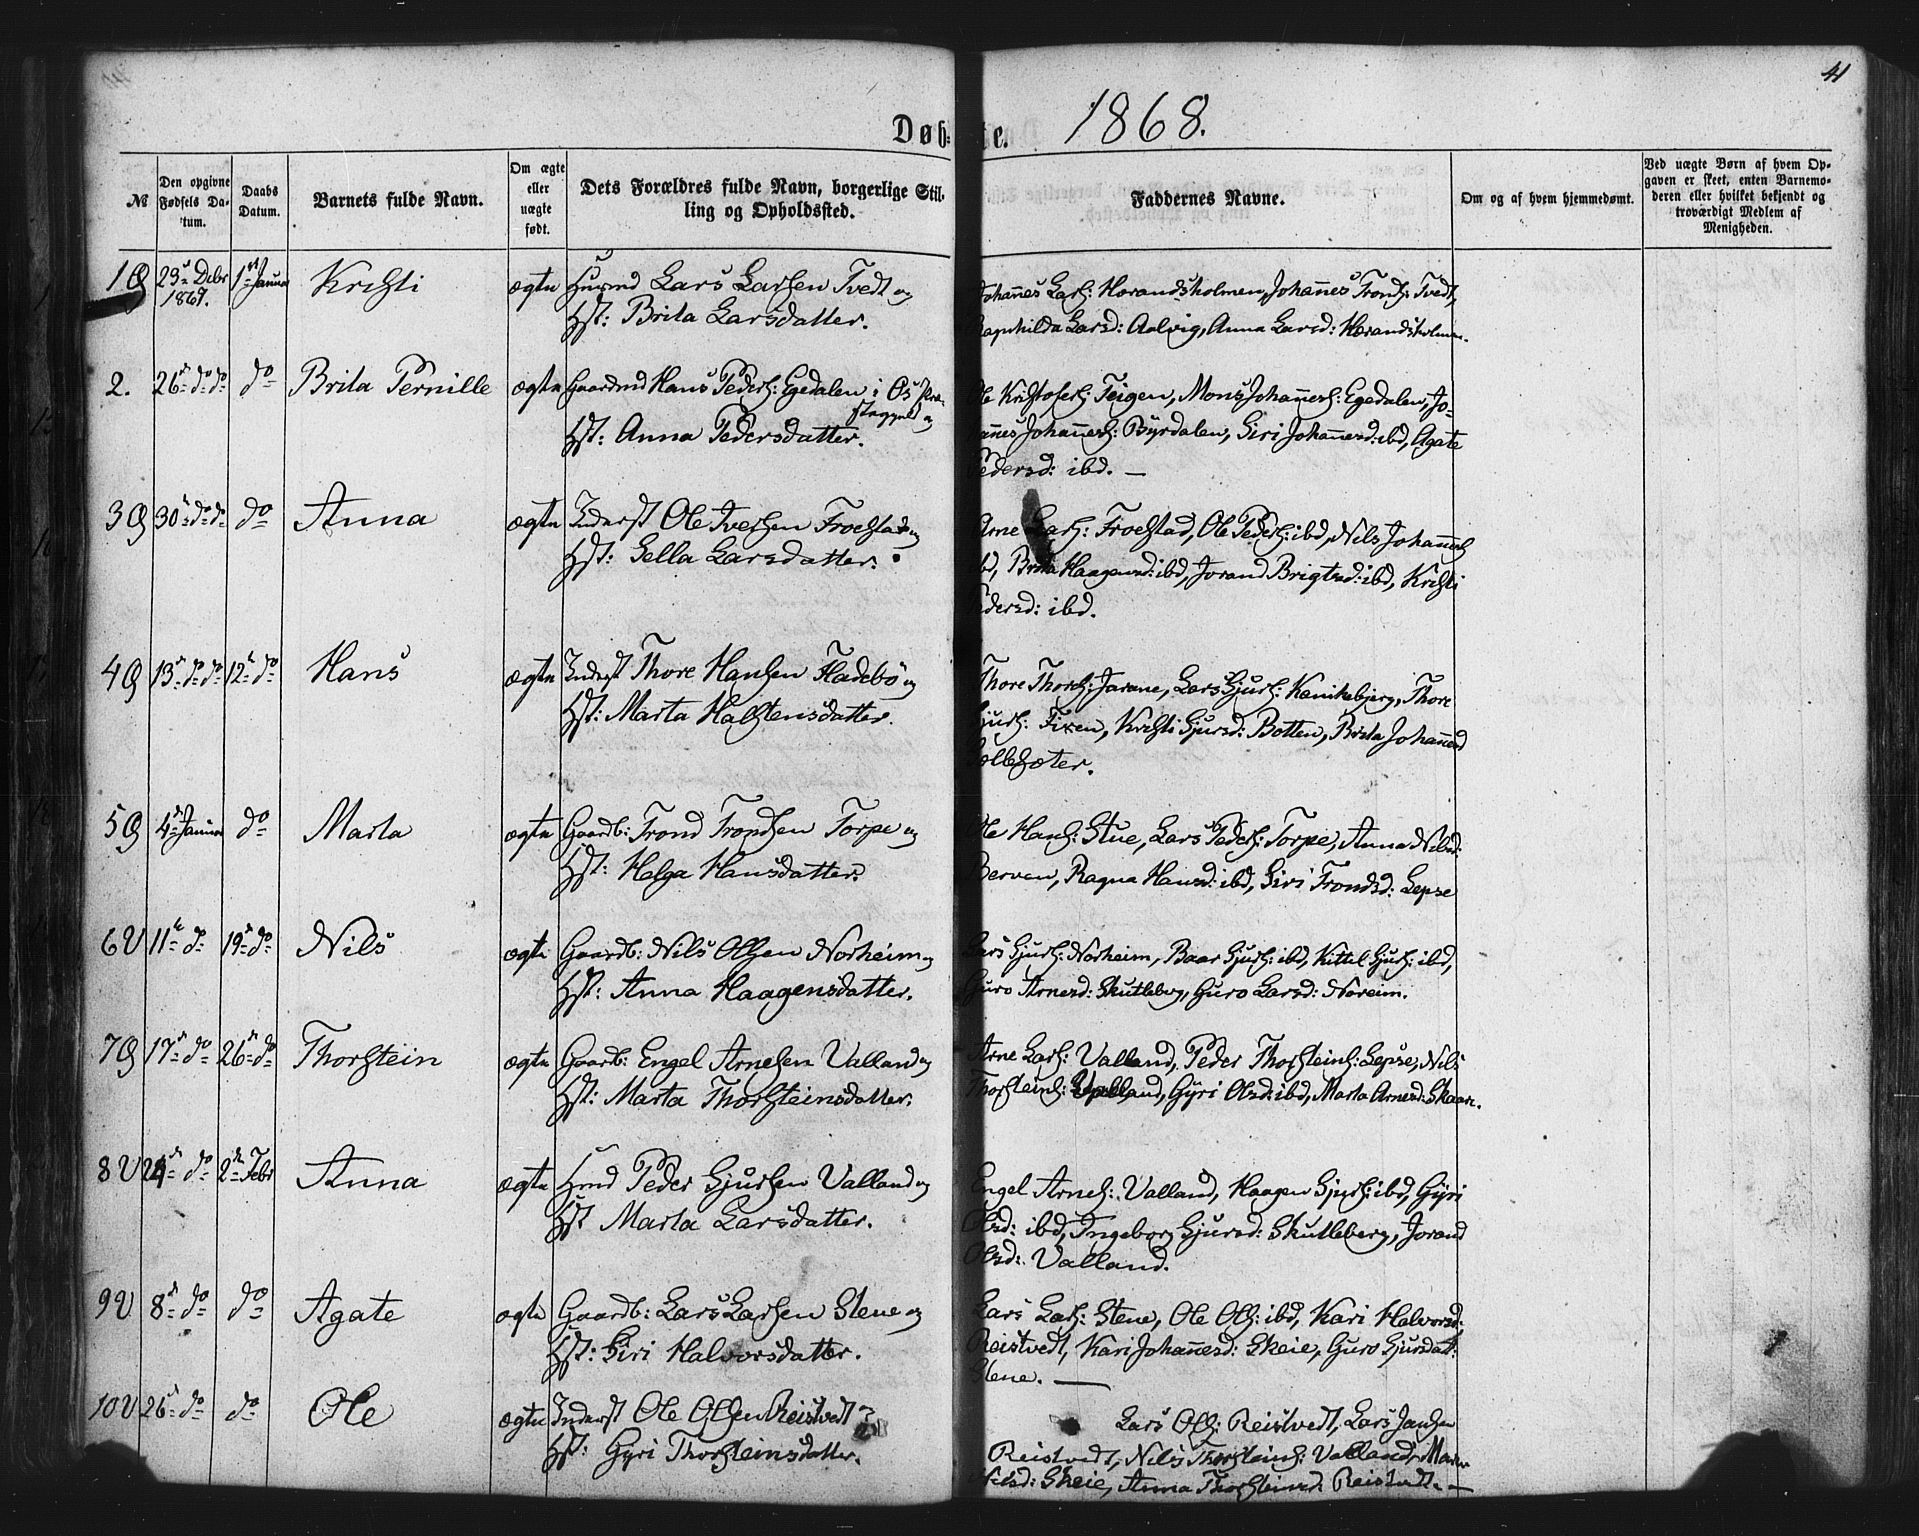 41
Døbte. 1868.
№
Den opgivne Fødsels Da-tum.
Daabs Datum.
Barnets fulde Navn.
Om ægte eller uægte født.
Dets Forældres fulde Navn, borgerlige Stil-ling og Opholdssted.
Faddernes Navne.
Om og af hvem hjemmedømt.
Ved uægte Børn af hvem Op-gaven er skeet, enten Barnemo-deren eller hvilket bekjendt og troværdigt Medlem af Menigheden.
1 23 Debr 1867. 1 Janua Kristi ægte Huusmd Lars Larsen Tvedt og
Hst: Brita Larsdatter.
Johannes Lars: Horandsholmen, Johannes Trond: Tvedt,
Ragnhilda Larsd: Aalvig, Anna Larsd: Horandsholmen.
2. 26 do do do Brita Pernille ægte Gaardmd Hans Peders: Egedalen i Os Præ-
stegjeld og
Hst: Anna Pedersdatter.
Ole Kristofers: Teigen, Mons Johannes: Egedalen, Jo-
hannes Johannes: Byrdalen, Siri Johannesd: ibd, Agate
Pedersd: ibd. —
3 30 do do do Anna ægte Inderst Ole Iversen Froestad og
Hst: Sella Larsdatter.
Arne Lars: Froestad, Ole Peders: ibd, Nils Johannes
ibd, Brita Haagensd: ibd, Jorand Brigtsd: ibd, Kristi
Pedersd: ibd.
4 13 do do 12 do Hans ægte Inderst Thore Hansen Fladebö og
Hst: Marta Halstensdatter.
Thore Thores: Jarane, Lars Sjurs: Kænikebjerg, Thore
Sjurs: Fixen, Kristi Sjursd: Botten, Brita Johannesd
5 4 Janua do Marta ægte Gaardb: Trond Trondsen Torpe og
Hst: Helga Hansdatter.
Ole Hans: Stue, Lars Peders: Torpe, Anna Nilsd:
Berven, Ragna Hansd: ibd, Siri Trondsd: Lepse
6 V 11 do 19 do Nils ægte Gaardb: Nils Olsen Norheim og
Hst: Anna Haagensdatter.
Lars Sjurs: Norheim, Baar Sjurs: ibd, Kittil Sjurs: ibd,
Guro Arnesd: Skutleberg, Guro Larsd: Noreim.
7 17 do 26 do Thorstein ægte Gaardb: Engel Arnesen Valland og
Hst: Marta Thorsteinsdatter.
Arne Lars: Valland, Peder Thorsteins: Lepse, Nils
Thorsteins: Valland, Gyri Olsd: ibd, Marta Arnesd: Skaare.
8 V 24 do 2 Febr Anna ægte Hmd Peder Sjursen Valland og
Hst Marta Larsdatter.
Engel Arnes: Valland, Haagen Sjurs: ibd, Gyri
Olsd: ibd, Ingeborg Sjursd: Skutleberg, Jorand
Olsd: Valland.
9 V 8 do do Agate ægte Gaardb: Lars Larsen Stene og
Hst: Siri Halvorsdatter.
Lars Lars: Stene, Ole Ols: ibd, Kari Halvorsd:
Reistvedt, Kari Johannesd: Skeie, Guro Sjursdat:
Stene. —
10 V 26 do do Ole ægte Inderst Ole Olsen Reistvedt og
Hst: Gyri Thorsteinsdatter.
Lars Ols: Reistvedt, Lars Jansen
Reistvedt, Nils Thorsteins: Valland,
Nilsd: Skeie, Anna Thorsteinsd: Reistvedt. —